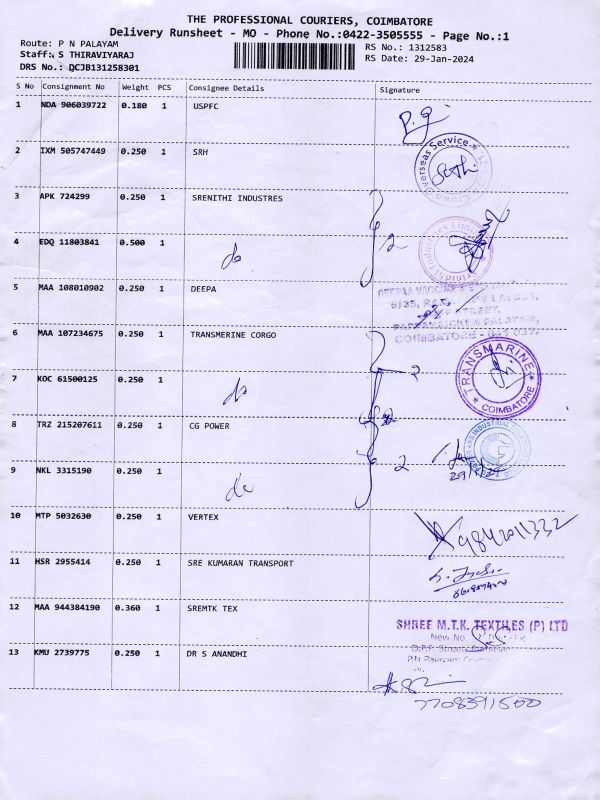 THE PROFESSIONAL COURIERS, COIMBATORE
Delivery Runsheet - MO - Phone No.:0422-3505555 - Page No.:1
Route: P N PALAYAM
RS No.: 1312583
Staff: S THIRAVIYARAJ
RS Date: 29-Jan-2024
DRS No.: QCJB131258301
S No Consignment No Weight PCS Consignee Details Signature
1 NDA 906039722 0.180 1 USPFC
2 IXM 505747449 0.250 1 SRH
Overseas Service
3 APK 724299 0.250 1 SRENITHI INDUSTRES
4 EDQ 11803841 0.500 1 do 2
5 MAA 108010902 0.250 1 DEEPA
COIMBATORE
6 MAA 107234675 0.250 1 TRANSMERINE CORGO
TRANSMARINE
COIMBATORE
2
7 KOC 61500125 0.250 1 do
8 TRZ 215207611 0.250 1 CG POWER
9 NKL 3315190 0.250 1 do 2
10 MTP 5032630 0.250 1 VERTEX
9842011332
11 HSR 2955414 0.250 1 SRE KUMARAN TRANSPORT
12 MAA 944384190 0.360 1 SREMTK TEX
SHREE M.T.K. TEXTILES (P) LTD
New No.
P.N Palayam
13 KMU 2739775 0.250 1 DR S ANANDHI
7708391500